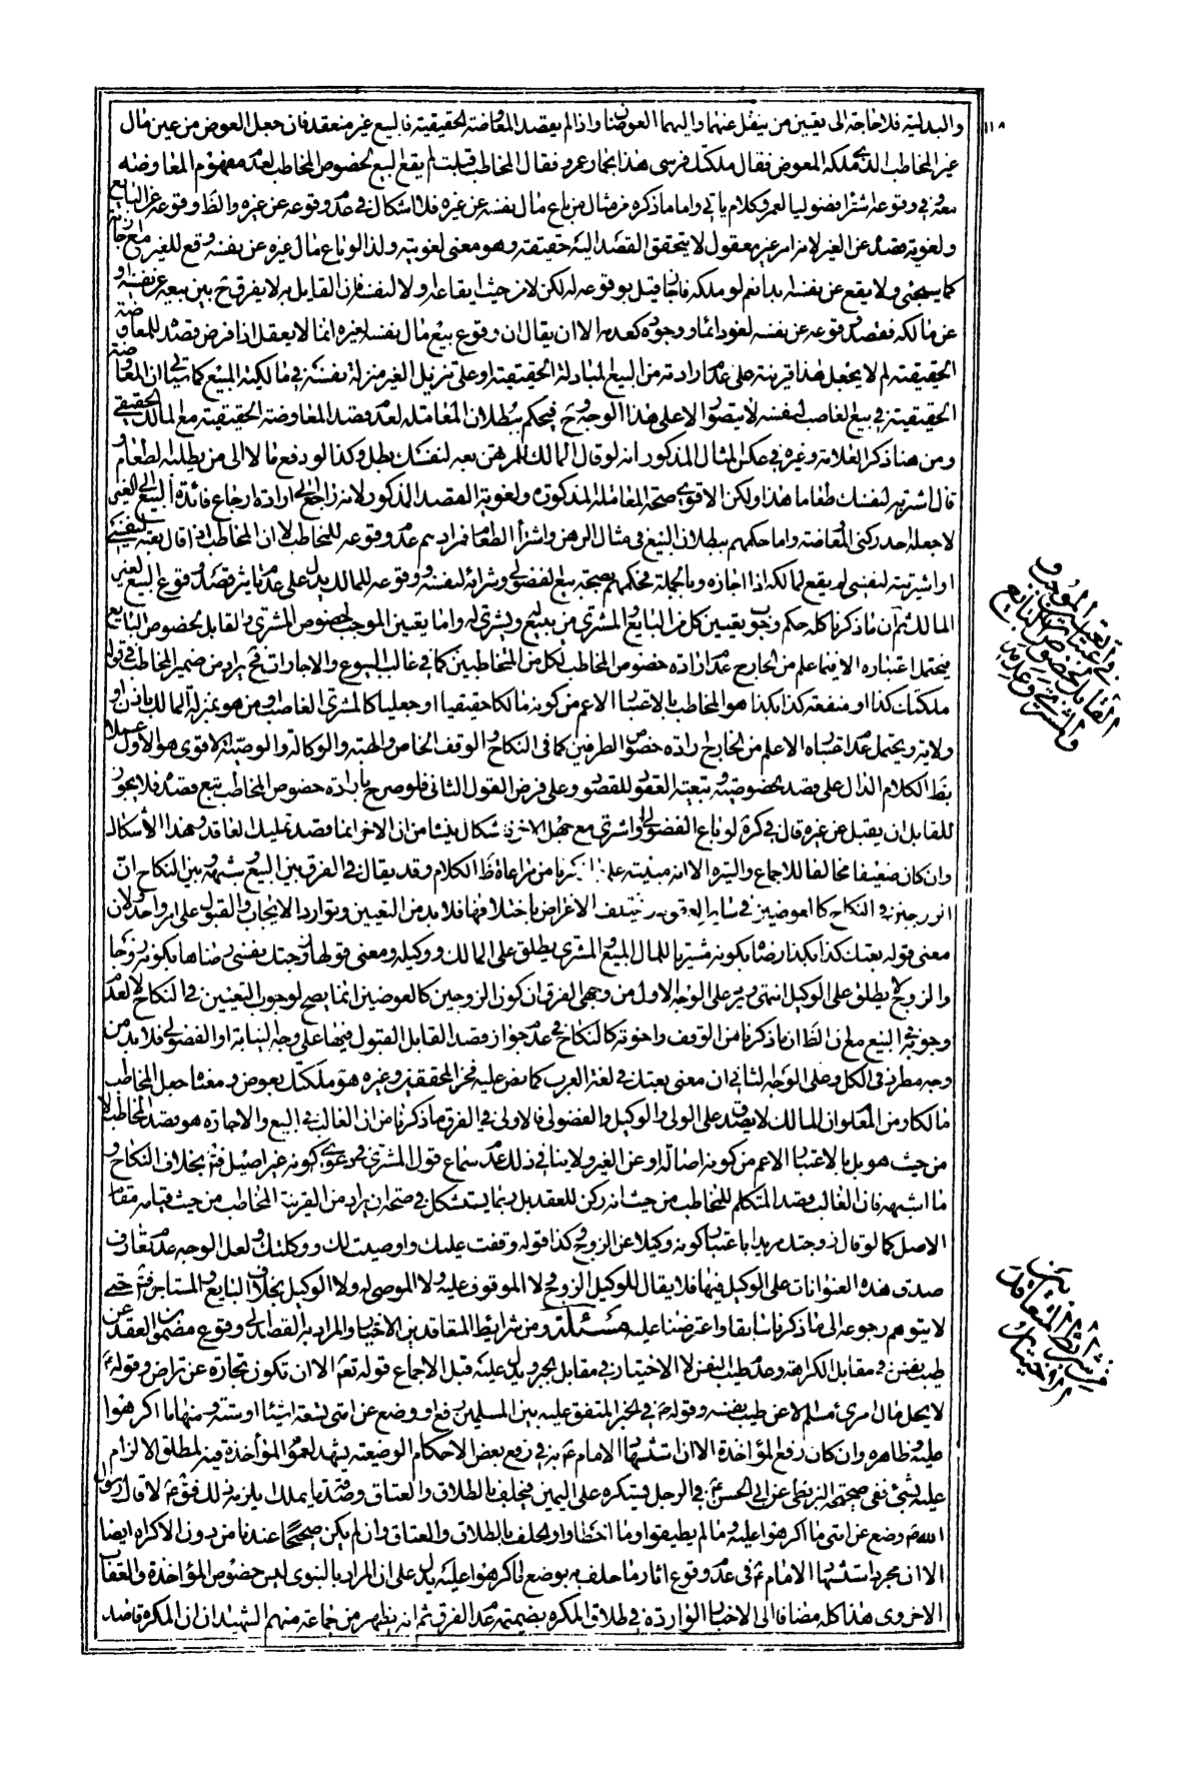 ١١٨
والبدلية فلا حاجة الى تعيين من ينقل عنهما واليهما العوضان واذا لم يقصد المعاوضة الحقيقية فالبيع غير منعقد فان جعل العوض من عين مال
غير المخاطب الذى ملكه المعوض فقال ملكتك فرسى هذا بحمار عمرو فقال المخاطب قبلت لم يقع البيع لخصوص المخاطب لعدم مفهوم المعاوضة
معه وفى وقوعه اشتراء فضوليا لعمرو كلام ياتى واما ما ذكره من مثال من باع مال نفسه عن غيره فلا اشكال فى عدم وقوعه عن غيره والظ وقوعه عن البايع
ولغوية قصده عن الغير لانه امر غير معقول لا يتحقق القصد اليه حقيقة وهو معنى لغويته ولذا لو باع مال غيره عن نفسه وقع للغير مع اجازته
كما سيجئ ولا يقع عن نفسه ابدا نعم لو ملكه فاجاز قيل بوقوعه له لكن لا من حيث ايقاعه اولا لنفسه فان القايل به لا يفرق ح بين بيعه عن نفسه او
عن مالكه فقصد وقوعه عن نفسه لغو دائما ووجوده كعدمه الا ان يقال ان وقوع بيع مال نفسه لغيره انما لا يعقل اذا فرض قصده للمعاوضة
الحقيقية لم لا يجعل هذا قرينة على عدم ارادته من البيع المبادلة الحقيقية او على تنزيل الغير منزلة نفسه فى مالكية المبيع كما سياتى ان المعاوضة
الحقيقية فى بيع الغاصب لنفسه لا يتصور الا على هذا الوجه وح فيحكم ببطلان المعاملة لعدم قصد المعاوضة الحقيقية مع المالك الحقيقى
ومن هنا ذكر العلامة وغيره فى عكس المثال المذكور انه لو قال المالك للمرتهن بعه لنفسك بطل وكذا لو دفع مالا الى من يطلبه الطعام و
قال اشتر به لنفسك طعاما هذا ولكن الاقوى صحة المعاملة المذكورة ولغوية القصد المذكور لانه راجع الى ارادة ارجاع فائدة البيع الى الغير
لا جعله احد ركنى المعاوضة واما حكمهم ببطلان البيع فى مثال الرهن واشتراء الطعام فمرادهم عدم وقوعه للمخاطب لا ان المخاطب اذا قال بعته لنفسى
او اشتريته لنفسى لم يقع لمالكه اذا اجازه وبالجملة فحكمهم بصحة بيع الفضولى وشرائه لنفسه ووقوعه للمالك يدل على عدم تاثير قصد وقوع البيع لغير
المالك ثم ان ما ذكرنا كله حكم وجوب تعيين كل من البايع والمشترى من يبيع ويشترى له واما تعيين الموجب لخصوص المشترى والقابل لخصوص البايع
فيحتمل اعتباره الا فيما علم من الخارج عدم ارادة خصوص المخاطب لكل من المتخاطبين كما فى غالب البيوع والاجارات فح يراد من ضمير المخاطب فى قوله
ملكتك كذا او منفعة كذا بكذا هو المخاطب بالاعتبار الاعم من كونه مالكا حقيقيا او جعليا كالمشترى الغاصب او من هو بمنزلة المالك باذن او
ولاية ويحتمل عدم اعتباره الا علم من الخارج ارادة خصوص الطرفين كما فى النكاح والوقف الخاص والهبة والوكالة والوصية الاقوى هو الاول عملا
بظ الكلام الدال على قصد الخصوصية وتبعية العقود للقصود وعلى فرض القول الثانى فلو صرح بارادة خصوص المخاطب تبع قصده فلا يجوز
للقابل ان يقبل عن غيره قال فى كرة لو باع الفضولى او اشترى مع جهل الاخر فاشكال ينشا من ان الاخر انما قصد تمليك العاقد وهذا الاشكال
وان كان ضعيفا مخالفا للاجماع والسيرة الا انه مبنية على ما ذكرنا من مراعاة ظ الكلام وقد يقال فى الفرق بين البيع وشبهه وبين النكاح ان
الزوجين فى النكاح كالعوضين فى ساير العقود ويختلف الاغراض باختلافهما فلا بد من التعيين وتوارد الايجاب والقبول على امر واحد ولان
معنى قوله بعتك كذا بكذا رضاه بكونه مشتريا للمال المبيع والمشترى يطلق على المالك ووكيله ومعنى قولها زوجتك نفسى رضاها بكونه زوجا
والزوج لا يطلق على الوكيل انتهى ويرد على الوجه الاول من وجهى الفرق ان كون الزوجين كالعوضين انما يصح لوجوب التعيين فى النكاح لا لعدم
وجوبه فى البيع مع ان الظ ان ما ذكرنا من الوقف واخوته كالنكاح فى عدم جواز قصد القابل القبول فيها على وجه النيابة او الفضولى فلا بد من
وجه مطرد فى الكل وعلى الوجه الثانى ان معنى بعتك فى لغة العرب كما نص عليه فخر المحققين وغيره هو ملكتك بعوض ومعناه جعل المخاطب
مالكا ومن المعلوم ان المالك لا يصدق على الولى والوكيل والفضولى فالاولى فى الفرق ما ذكرنا من ان الغالب فى البيع والاجارة هو قصد المخاطب لا
من حيث هو بل بالاعتبار الاعم من كونه اصالة او عن الغير ولا ينافى ذلك عدم سماع قول المشترى فى دعوى كونه غير اصيل فتم بخلاف النكاح و
ما اشبهه فان الغالب قصد المتكلم للمخاطب من حيث انه ركن للعقد بل ربما يستشكل فى صحة ان يراد من القرينة المخاطب من حيث قيامه مقام
الاصل كما لو قال زوجتك مريدا باعتبار كونه وكيلا عن الزوج وكذا قوله وقفت عليك واوصيت لك ووكلتك ولعل الوجه عدم تعارف
صدق هذه العنوانات على الوكيل فيها فلا يقال للوكيل الزوج ولا الموقوف عليه ولا الموصى له ولا الموكل بخلاف البايع والمستاجر فتم حتى
لا يتوهم رجوعه الى ما ذكرنا سابقا واعترضنا عليه مسئلة ومن شرايط المتعاقدين الاختيار والمراد به القصد الى وقوع مضمون العقد عن
طيب نفس فى مقابل الكراهة وعدم طيب النفس لا الاختيار فى مقابل الجبر ويدل عليه قبل الاجماع قوله تعم الا ان تكون تجارة عن تراض وقوله ع
لا يحل مال امرئ مسلم الا عن طيب نفسه وقوله ص فى الخبر المتفق عليه بين المسلمين رفع او وضع عن امتى تسعة اشياء او ستة ومنها ما اكرهوا
عليه وظاهره وان كان رفع المؤاخذة الا ان استشهاد الامام ع به فى رفع بعض الاحكام الوضعية يشهد لعموم المؤاخذة فيه لمطلق الالزام
عليه بشئ ففى صحيحة البزنطى عن ابى الحسن ع فى الرجل يستكره على اليمين فيحلف بالطلاق والعتاق وصدقة ما يملك يلزمه ذلك فقال ع لا قال رسول
الله ص وضع عن امتى ما اكرهوا عليه وما لم يطيقوا وما اخطاوا والحلف بالطلاق والعتاق وان لم يكن صحيحا عندنا من دون الاكراه ايضا
الا ان مجرد استشهاد الامام ع فى عدم وقوع اثار ما حلف به بوضع ما اكرهوا عليه يدل على ان المراد بالنبوى ليس خصوص المؤاخذة والعقاب
الاخروى هذا كله مضافا الى الاخبار الواردة فى طلاق المكره بضميمة عدم الفرق ثم انه يظهر من جماعة منهم الشهيدان ان المكره قاصد
فى اعتبار تعيين الموجب و
القابل لخصوص البايع
والمشترى وعدمه
من شرايط المتعاقدين
الاختيار